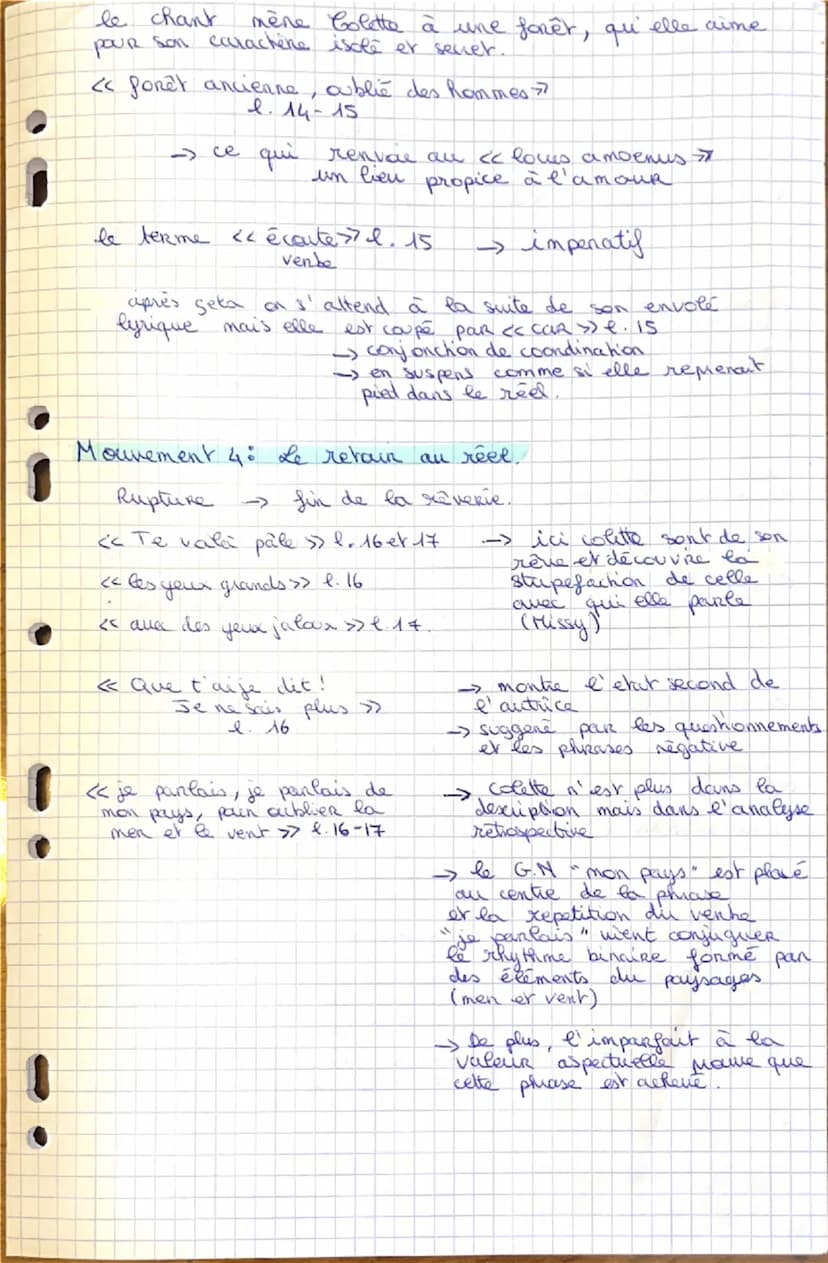 le chant mène Colette à une forêt, qu'elle aime
pour son caractère isolé et secret.
<< forêt ancienne, oublié des hommes >>
l. 14-15
-> ce qui renvoie au << locus amoenus >>
un lieu propice à l'amour
le terme << écoute >> l. 15 -> imperatif
verbe
après cela on s'attend à la suite de son envolé
lyrique mais elle est coupé par << car >> l. 15
-> conjonction de coordination
-> en suspens comme si elle reprenait
pied dans le réel.
Mouvement 4: Le retour au réel.
Rupture -> fin de la rêverie.
<< Te voilà pâle >> l. 16 et 17 -> ici colette sort de son
rêve et découvre la
<< les yeux grands >> l. 16 stupefaction de celle
avec qui elle parle
<< avec des yeux jaloux >> l. 17. (Missy)
<< Que t'ai je dit! -> montre l'etat second de
Je ne sais plus >> l'autrice
l. 16 -> suggeré par les questionnements
et les phrases négative
<< je parlais, je parlais de -> Colette n'est plus dans la
mon pays, pour oublier la description mais dans l'analyse
mer et le vent >> l. 16-17 rétrospective
-> le G.N "mon pays" est placé
au centre de la phrase
et la repetition du verbe
"je parlais" vient conjuguer
le rhythme binaire formé par
des éléments du paysages
(mer et vent)
-> De plus, l'imparfait à la
valeur aspectuelle prouve que
cette phrase est achevé.